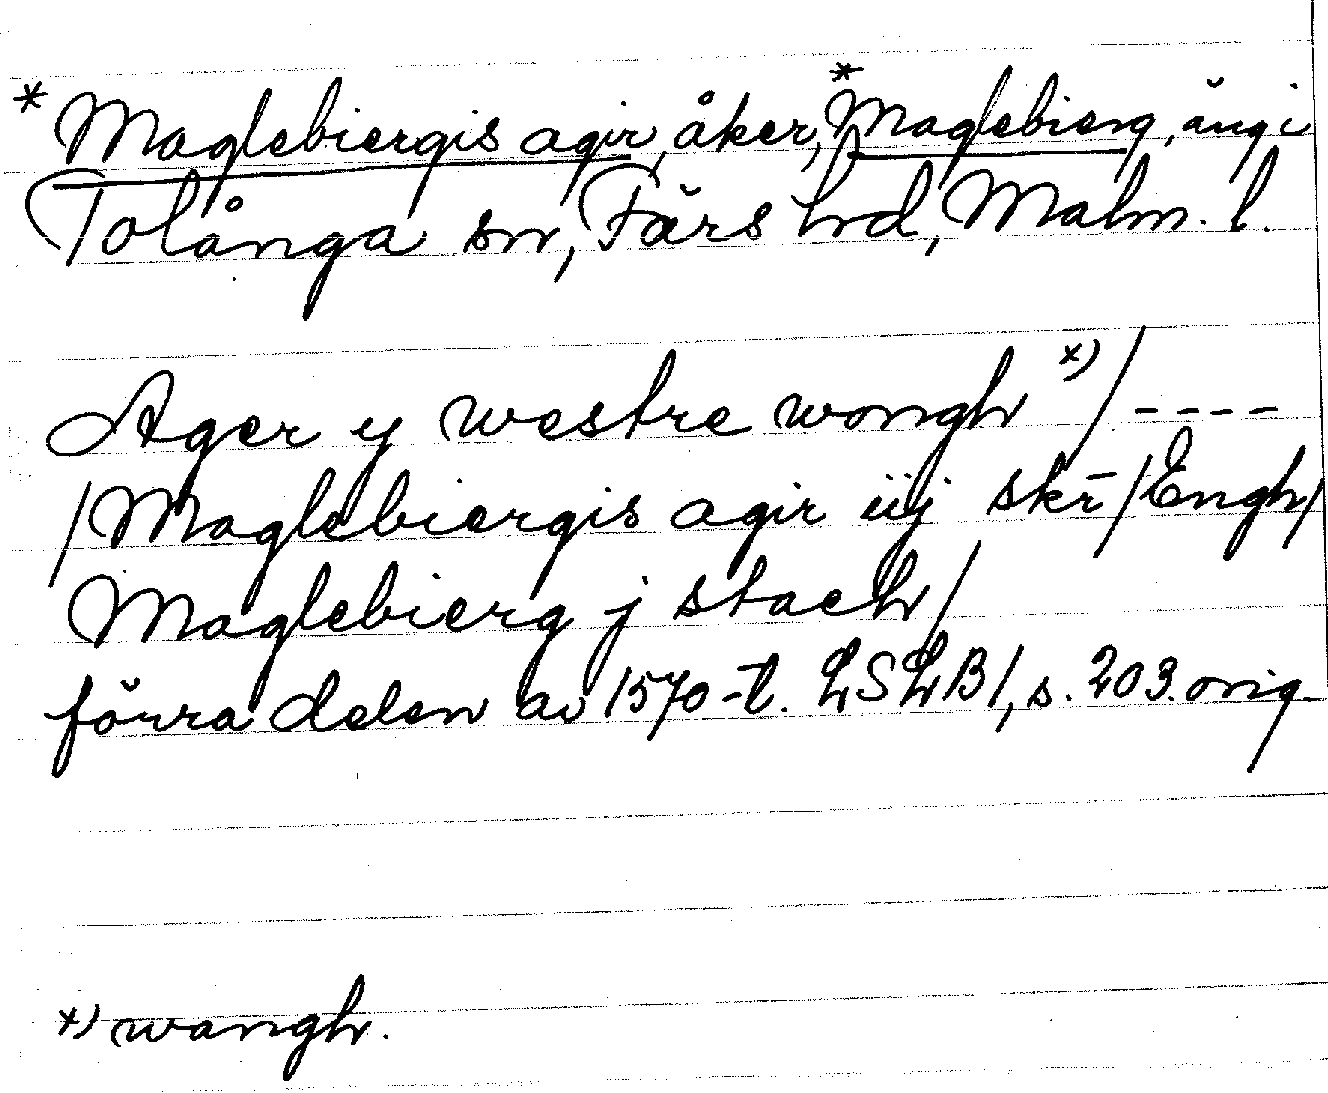 *Maglebiergis agir, åker, *Maglebierg, äng i
Tolånga sn, Färs hd, Malm. l.
Ager y westre wongh *) / ----
/ Maglebiergis agir iij skr̄ / Engh /
Maglebierg j stach /
förra delen av 1570-t. LSLB 1, s. 203. orig.
*) wangh.